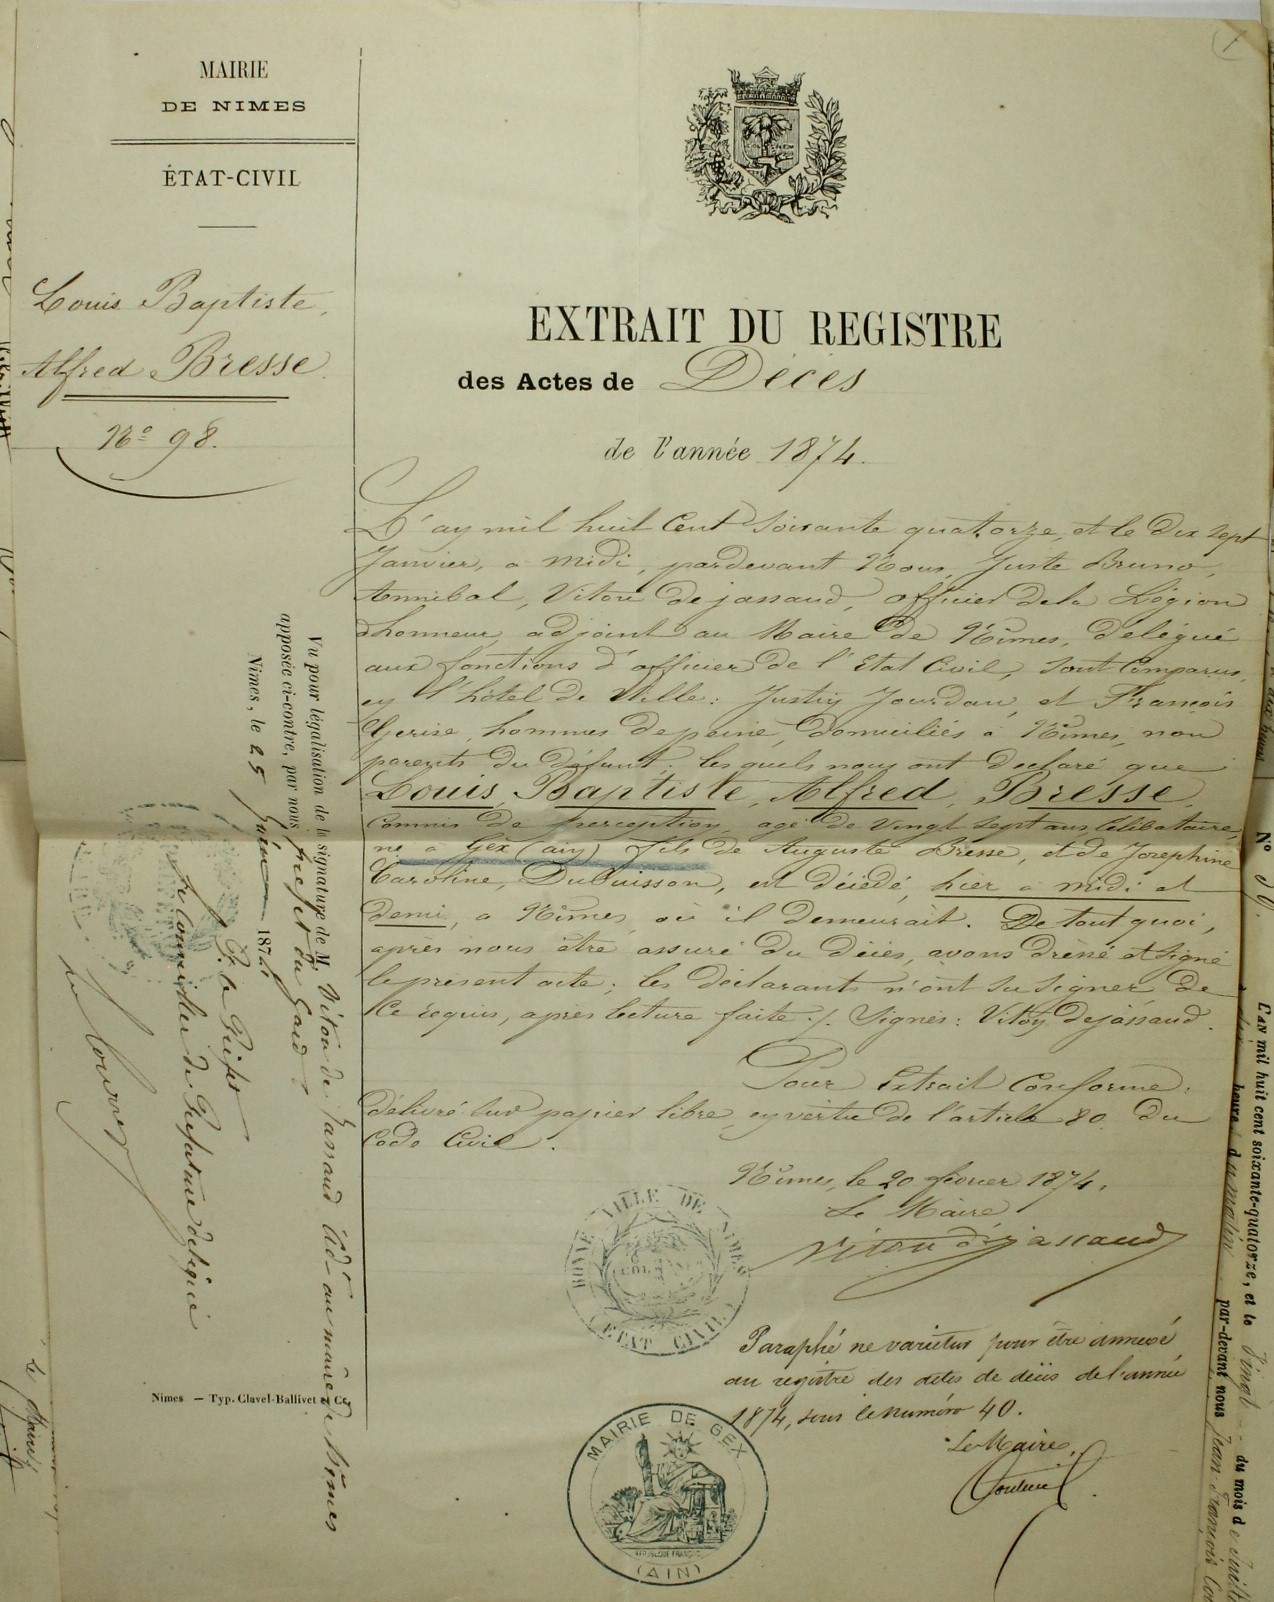 MAIRIE
DE NIMES
ÉTAT-CIVIL
Louis Baptiste,
Alfred Bresse.
No 98.
EXTRAIT DU REGISTRE
des Actes de Décès
de l'année 1874.
L'an mil huit Cent soixante quatorze, et le Dix sept
Janvier, a midi, pardevant Nous, Juste Bruno,
Annibal, Viton dejassaud, officier dela Légion
dhonneur, adjoint au Maire de Nîmes, délégué
aux fonctions d'officier de l'Etat Civil, sont Comparus,
en l'hôtel de Ville: Justin Jourdan, et François
hommes depeine, domiciliés à Nîmes, non
parents du défunt; lesquels nous ont déclaré que
Louis, Baptiste, Alfred, Bresse,
Commis de perception, agé de Vingt sept ans Célibataire,
né à Gex (ain) fils de Auguste Bresse, et de Joséphine
Caroline, Dubuisson, est décédé, hier à midi et
demi, a Nîmes, où il demeurait. De tout quoi,
après nous être assuré du décès, avons dressé et signé
le présent acte; les déclarants n'ont su signer de
Ce requis, après lecture faite ./. Signés: Viton dejassaud.
Pour Extrait Conforme.
Délivré sur papier libre, en vertu de l'article 80 du
Code Civil.
Nîmes, le 20 février 1874.
Le Maire
Viton dejassaud
BONNE VILLE DE NIMES
(ETAT CIVIL)
Paraphé ne varietur pour être annexé
au registre des actes de décès de l'année
1874, sous le numéro 40.
Le Maire,
MAIRIE DE GEX
RÉPUBLIQUE FRANÇAISE
(AIN)
Vu pour légalisation de la signature de M. Viton de Jassaud Adt au maire de Nîmes
apposée ci-contre, par nous préfet du Gard
Nimes, le 25 1874
P. le Préfet
Le Conseiller de Préfecture délégué
Nimes — Typ. Clavel-Ballivet & Ce
Le Maire,
No
L'AN mil huit cent soixante-quatorze, et le Vingt - du mois de Juillet
heure du matin par-devant nous Jean François
1